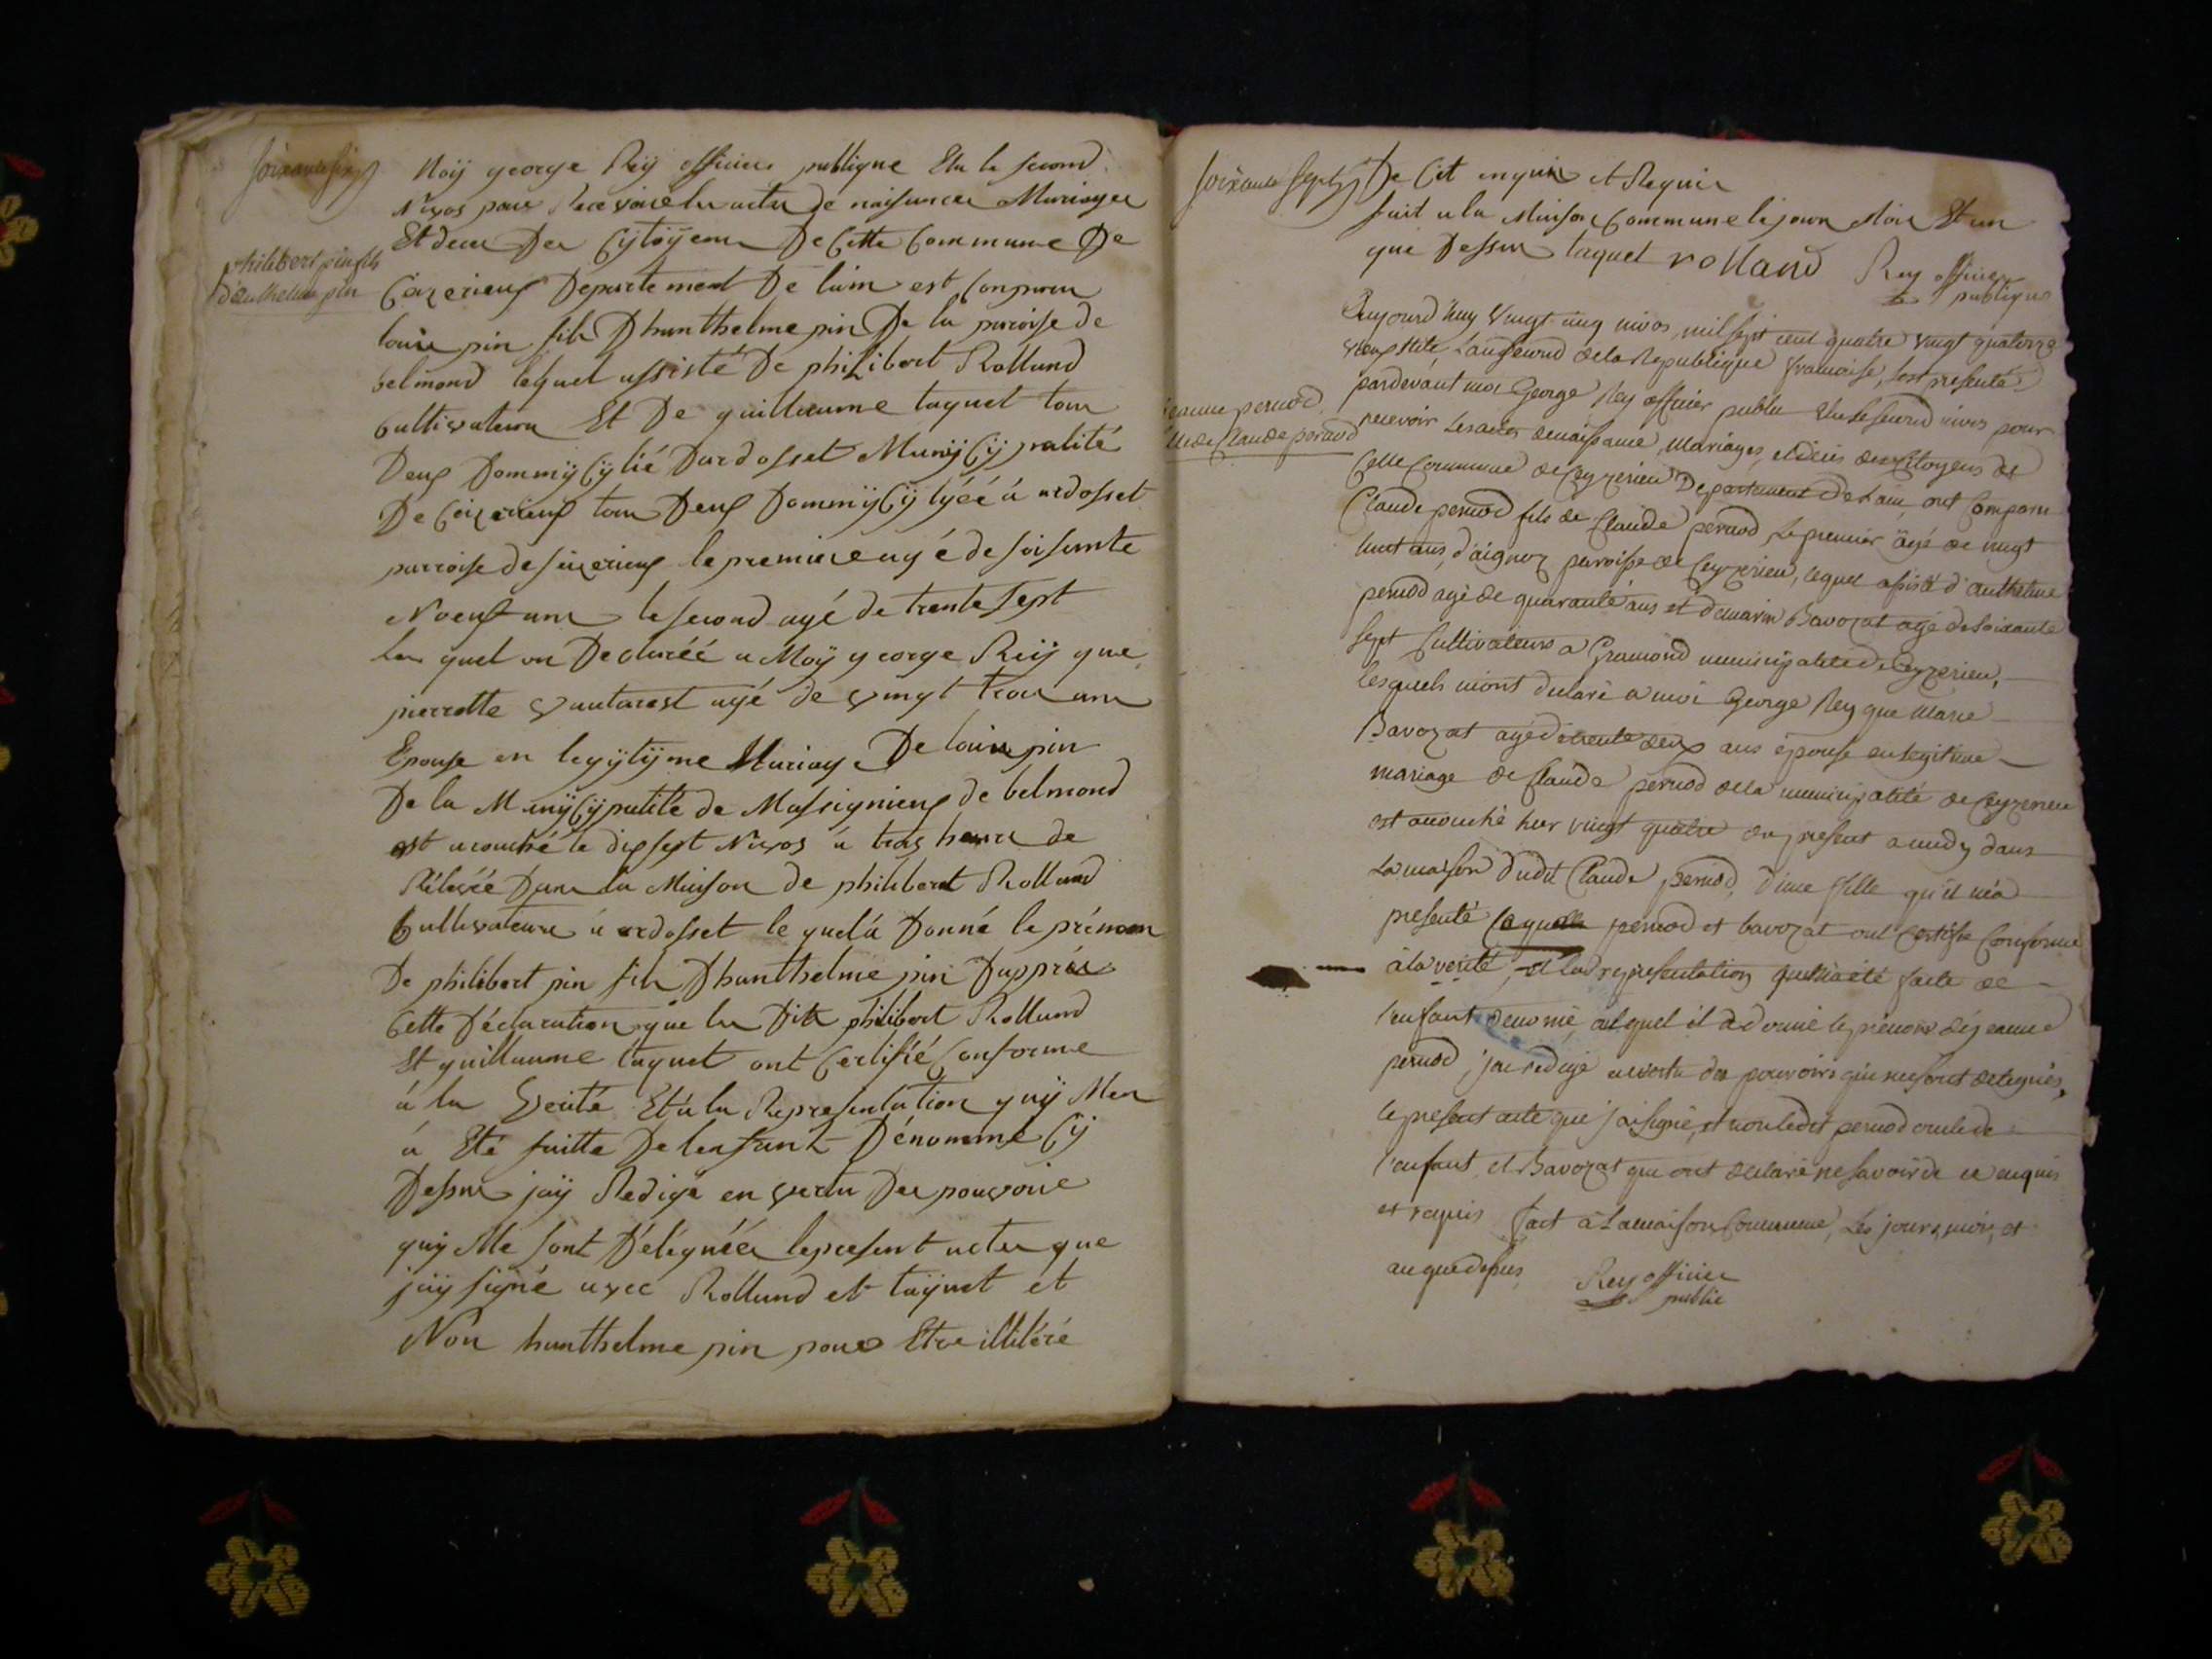 Soixante six
Moÿ george Reÿ officier publique Elu le second
Nivos pour Recevoire les actes de naisances Mariages
Et deces Des Cÿtoÿens De Cette Commune De
philibert pin fils
d'authelme pin
Ceizerieux Departement De lain est Comparu
louis pin fils Dhanthelme pin De la paroise de
belmond lequel assisté De philibert Rolland
Cultivateur Et De guillaume taquet tous
Deux Dommÿcÿlié Dardosset Munÿcÿpalité
De Ceizerieux tous Deux Dommÿcÿlyéé á ardosset
parroise de seizerieux le premier agé de soisante
Noeuf ans le second agé de trente sept
les quel on Declaréé a Moÿ george Reÿ que
pierrette vautarest agé de vingt trois ans
Epouse en legÿtÿme Mariage De louis pin
De la Munÿcÿpalité de Massignieux de belmond
est acouché le dixsept Nivos á trois heures de
Rélevée Dans la Maison de philibert Rolland
Cultivateur á ardosset le quel á Donné le prénom
De philibert pin fils Dhanthelme pin Dapprés
Cette Déclaration que les Dits philibert Rolland
Et guillaume taquet ont Certifié Conforme
á la Verité Et á la Representation quÿ Men
á Eté faitte De lenfant Dénommé Cÿ
Dessus jaÿ Redigé en vertu Des pouvoirs
quÿ Me sont Déléguéés lepresent actes que
jaÿ signé avec Rolland et taquet et
Non hanthelme pin pour Etre illitéré
Soixante sept
De Cit enquis et Requis
fait a la Maison Commune le jours Mois Et an
que Dessus taquet rolland Rey officier
publique
Aujourd'huy vingt cinq nivos, mil sept cent quatre vingt quatorze
vieux stile, l'an second de la Republique francoise, s'est presenté
pardevant moi George Rey officier public élu le second nivos pour
jeanne pernod
fille de Claude pernod
recevoir les actes denaissance, mariages, et décès des Citoyens de
Cette Commune de Ceyzerieu Departement de l'ain ont Comparu
Claude pernod fils de Claude pernod, le premier âgé de vingt
huit ans, d'aignoz paroisse de Ceyzerieu, lequel assisté d'authelme
pernod agé de quarante ans et de marin Bavozat agé de soixante
sept Cultivateurs a Gramond municipalité de Ceyzerieu,
lesquels m'ont declaré a moi George Rey que Marie
Bavozat agé de trente deux ans épouse en legitime
mariage de Claude pernod de la municipalité de Ceyzerieu
est accouché hier vingt quatre du present a midy dans
La maison dudit Claude pernod, d'une fille qu'il m'a
presenté laquelle pernod et bavozat ont Certifié Conforme
à la verité, et la representation qui m'a été faite de
l'enfant denomé, auquel il a donné le prénom de jeanne
pernod, j'ai redigé en vertu des pouvoirs qui me sont delegués,
le present acte que j'ai signé, et non ledit pernod oncle de
l'enfant et Bavozat qui ont declaré ne savoir de ce enquis
et requis fait à la maison Commune, Les jours, mois, et
an que dessus Rey officier
public